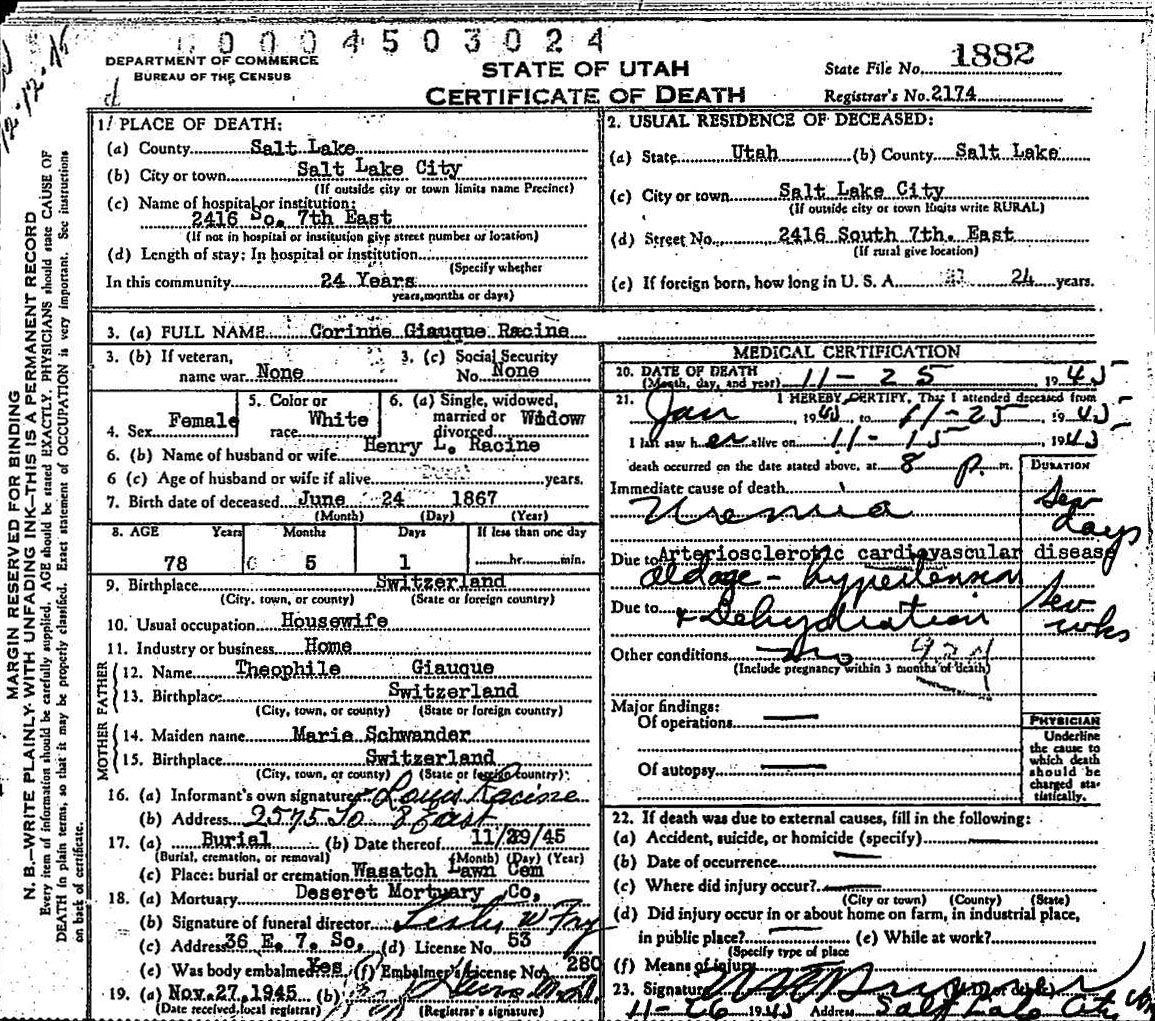 0004503024
12-12-45
DEPARTMENT OF COMMERCE
BUREAU OF THE CENSUS
STATE OF UTAH
CERTIFICATE OF DEATH
State File No. 1882
Registrar's No. 2174
MARGIN RESERVED FOR BINDING
N. B.—WRITE PLAINLY WITH UNFADING INK—THIS IS A PERMANENT RECORD
Every item of information should be carefully supplied. AGE should be stated EXACTLY. PHYSICIANS should state CAUSE OF
DEATH in plain terms, so that it may be properly classified. Exact statement of OCCUPATION is very important. See instructions
on back of certificate.
1. PLACE OF DEATH:
(a) County Salt Lake
(b) City or town Salt Lake City
(If outside city or town limits name Precinct)
(c) Name of hospital or institution:
2416 So. 7th East
(If not in hospital or institution give street number or location)
(d) Length of stay: In hospital or institution
(Specify whether
In this community 24 Years
years, months or days)
2. USUAL RESIDENCE OF DECEASED:
(a) State Utah (b) County Salt Lake
(c) City or town Salt Lake City
(If outside city or town limits write RURAL)
(d) Street No. 2416 South 7th. East
(If rural give location)
(e) If foreign born, how long in U. S. A. 24 years.
3. (a) FULL NAME Corinne Giauque Racine
3. (b) If veteran, name war None
3. (c) Social Security No. None
4. Sex Female
5. Color or race White
6. (a) Single, widowed, married or divorced Widow
6. (b) Name of husband or wife Henry L. Racine
6 (c) Age of husband or wife if alive years.
7. Birth date of deceased June 24 1867
(Month) (Day) (Year)
8. AGE Years Months Days If less than one day
78 5 1 hr. min.
9. Birthplace Switzerland
(City, town, or county) (State or foreign country)
10. Usual occupation Housewife
11. Industry or business Home
FATHER
12. Name Theophile Giauque
13. Birthplace Switzerland
(City, town, or county) (State or foreign country)
MOTHER
14. Maiden name Marie Schwander
15. Birthplace Switzerland
(City, town, or county) (State or foreign country)
16. (a) Informant's own signature Louis Racine
(b) Address 2575 So 8 East
17. (a) Burial (b) Date thereof 11/29/45
(Burial, cremation, or removal) (Month) (Day) (Year)
(c) Place: burial or cremation Wasatch Lawn Cem
18. (a) Mortuary Deseret Mortuary Co,
(b) Signature of funeral director Leslie W Fry
(c) Address 36 E. 7. So, (d) License No. 53
(e) Was body embalmed Yes (f) Embalmer's License No. 280
19. (a) Nov. 27, 1945 (b)
(Date received local registrar) (Registrar's signature)
MEDICAL CERTIFICATION
20. DATE OF DEATH
(Month, day, and year) 11-25 1945
21. I HEREBY CERTIFY, That I attended deceased from
Jan 19 to 11-25 1945
I last saw her alive on 11-15 1945
death occurred on the date stated above, at 8 P. m.
DURATION
Immediate cause of death
Uremia Sev days
Due to Arteriosclerotic cardiovascular disease
old age - hypertension
Due to & Dehydration Sev wks
Other conditions no
(Include pregnancy within 3 months of death)
Major findings:
Of operations —
Of autopsy —
PHYSICIAN
Underline
the cause to
which death
should be
charged sta-
tistically.
22. If death was due to external causes, fill in the following:
(a) Accident, suicide, or homicide (specify) —
(b) Date of occurrence —
(c) Where did injury occur? —
(City or town) (County) (State)
(d) Did injury occur in or about home on farm, in industrial place,
in public place? — (e) While at work?
(Specify type of place
(f) Means of injury
23. Signature
11-26 1945 Address Salt Lake City